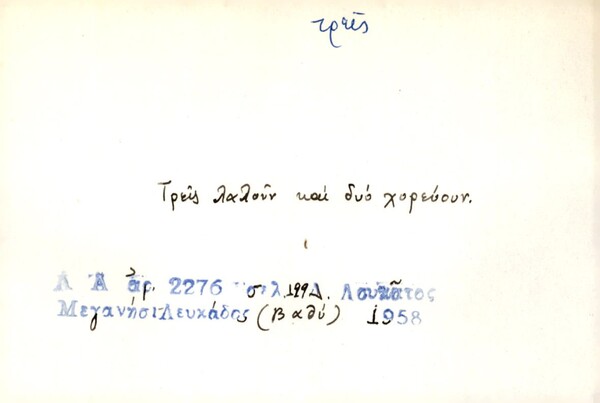 τρεῖς
Τρεῖς λαλοῦν καὶ δυό χορεύουν.
Λ Α ἀρ. 2276 σελ. 199 Δ. Λουκᾶτος
Μεγανήσι Λευκάδος (Βαθύ) 1958